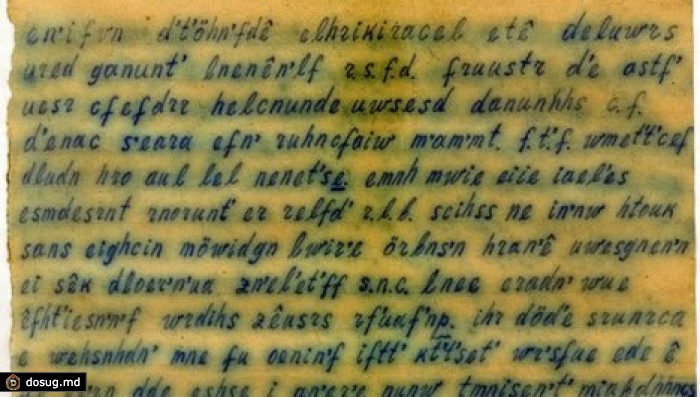 en'ifvn d't'öhn'fdê elhrikiracel etê deluwrs
ured ganunt' lnenên'lf r s.f.d. fruustr d'e astf'
uesr cfefdrr helcnunde uwsesd danunhhs c.f.
d'enac s'eara efn' ruhncfaiw m'am'mt. f.t'.f. wmet't'cef
dludn hro aul lel nenet'se. emnh mwie eiie iael'es
esmdesrnt rnorunt' er relfd' r.l.b. scihss ne in'nw htouk
sans eighcin möwidgn lwir'e örbnsn hran'ê uwesgnen'n
ei sêk dloer'n'ua zn'el'et'ff s.n.c. lnee eradn' wue
wrdihs zêusrs rf'uaf'np. ihr död'e srunrca
e wehsnhdn' mne fu oenin'f iftt' wr'sfue ede ê
dde eshse i an'er'e nunw tmnisen't'
dosug.md